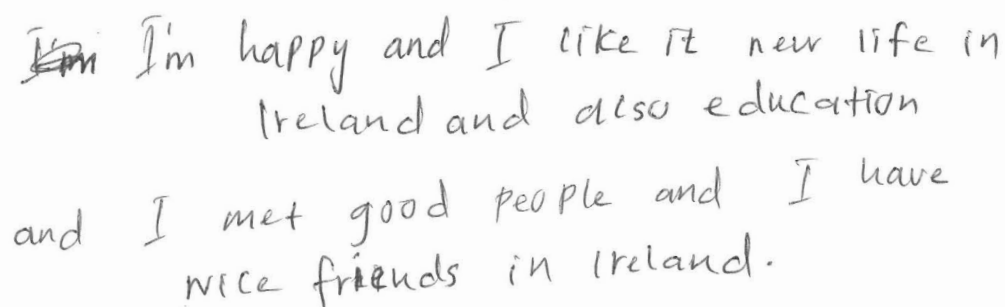 I'm happy and I like it new life in
Ireland and also education
and I met good people and I have
nice friends in Ireland.